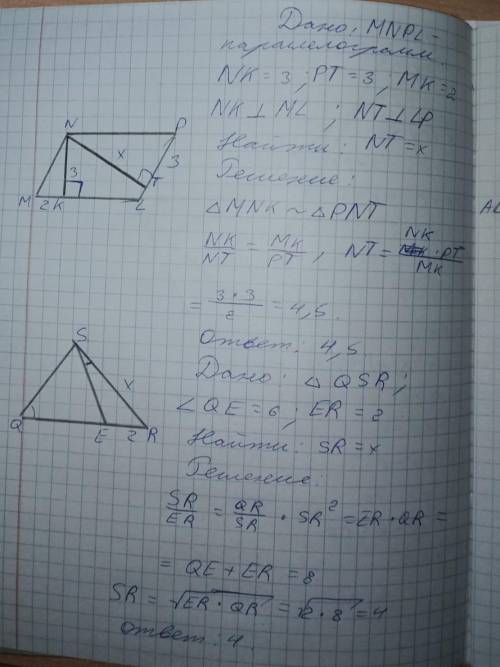 Дано: MNPL -
параллелограмм.
NK = 3; PT = 3; MK = 2
NK ⊥ ML ; NT ⊥ LP
Найти: NT = x
Решение:
△MNK ~ △PNT
NK/NT = MK/PT, NT = NK · PT/MK
= 3 · 3/2 = 4,5.
Ответ: 4,5
N P
x 3
3 T
M 2 K L
Дано: △ QSR;
∠QE = 6; ER = 2
Найти: SR = x
Решение:
SR/ER = QR/SR · SR² = ER · QR =
= QE + ER = 8
SR = √ER · QR = √2 · 8 = 4
Ответ: 4.
S
x
Q E 2 R